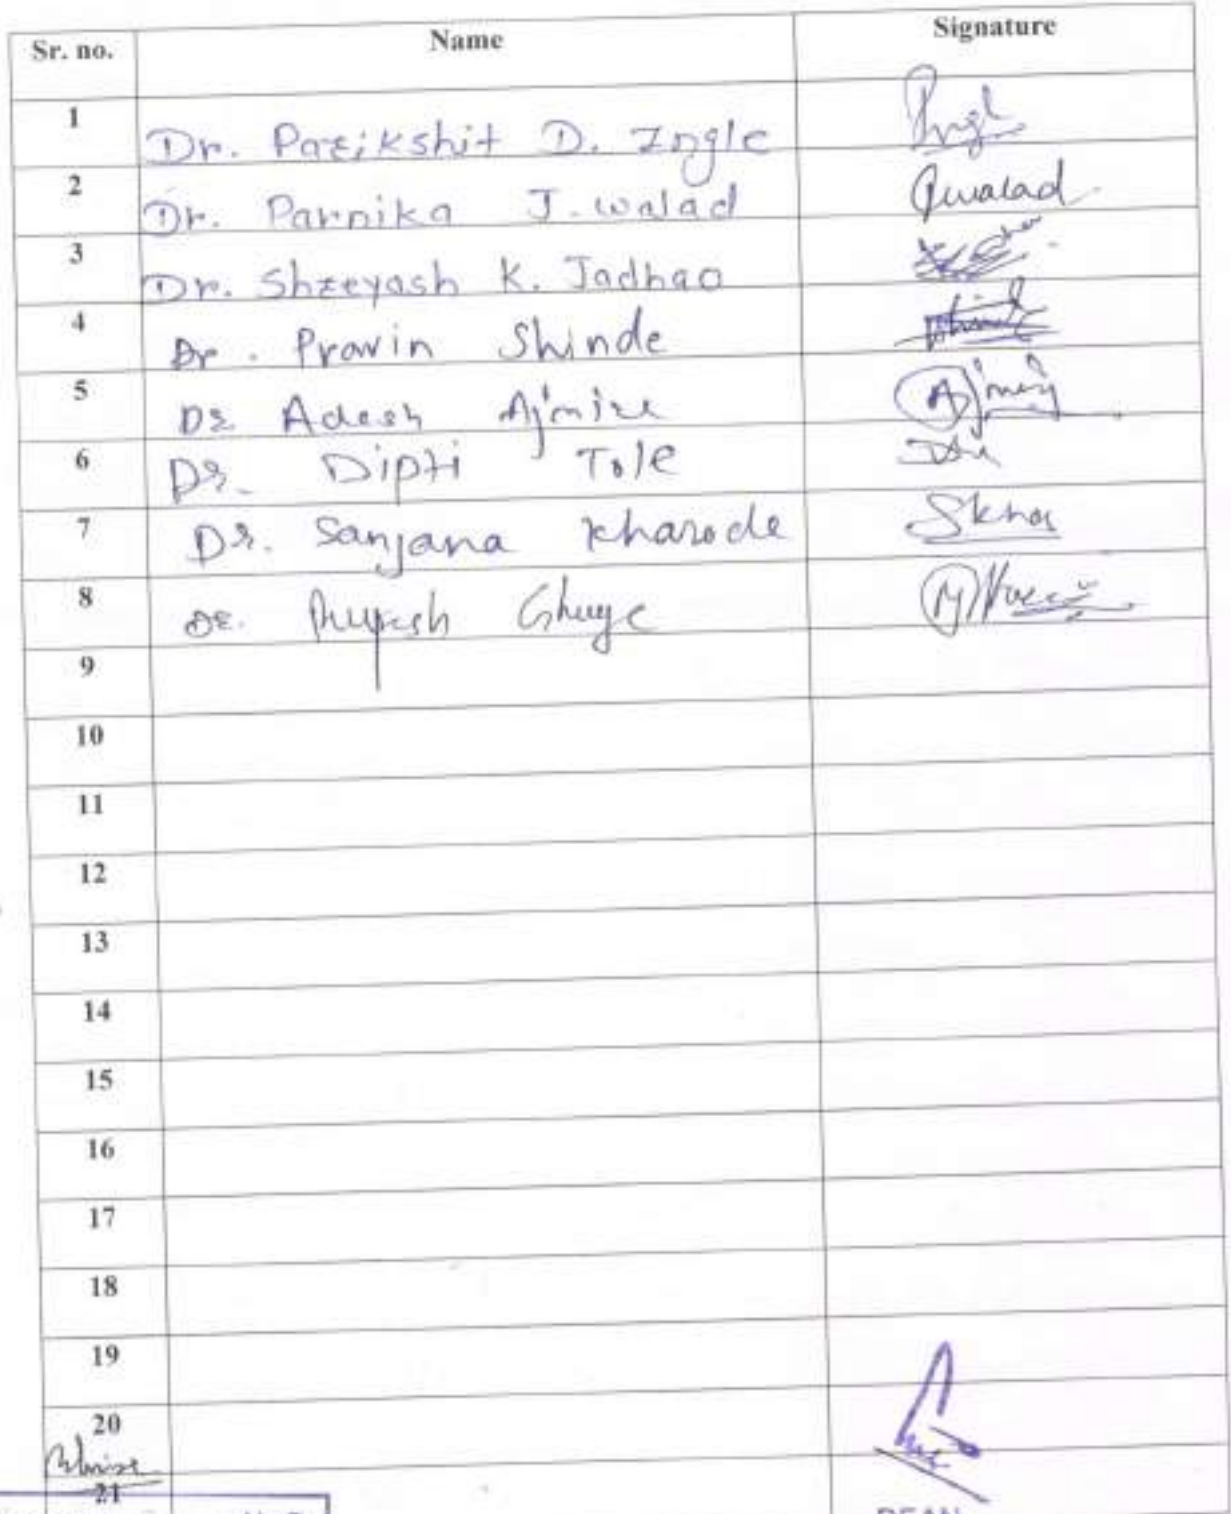 Sr. no. Name Signature
1 Dr. Parikshit D. Ingle
2 Dr. Parnika J. walad Pwalad
3 Dr. Shreeyash K. Jadhao
4 Dr. Pravin Shinde
5 Dr Adesh Ajmire
6 Dr. Dipti Tole
7 Dr. Sanjana Kharode
8 Dr. Ghuge
9
10
11
12
13
14
15
16
17
18
19
20
21
DEAN